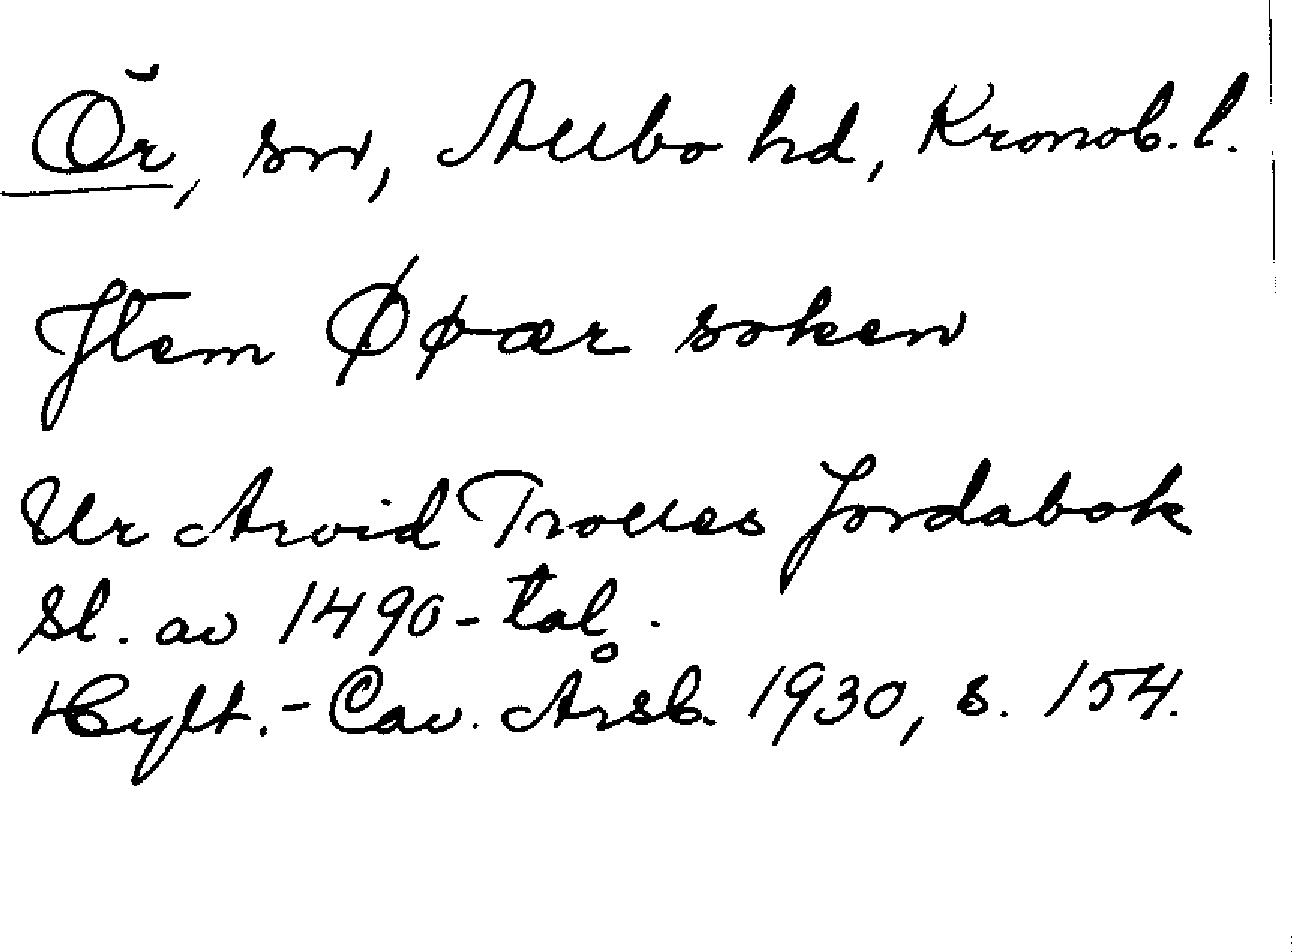 Ör, sn, Allbo hd, Kronob. l.
Jtem Øøær soken
Ur Arvid Trolles Jordabok
Sl. av 1490-tal.
Hylt.-Cav. Årsb. 1930, s. 154.